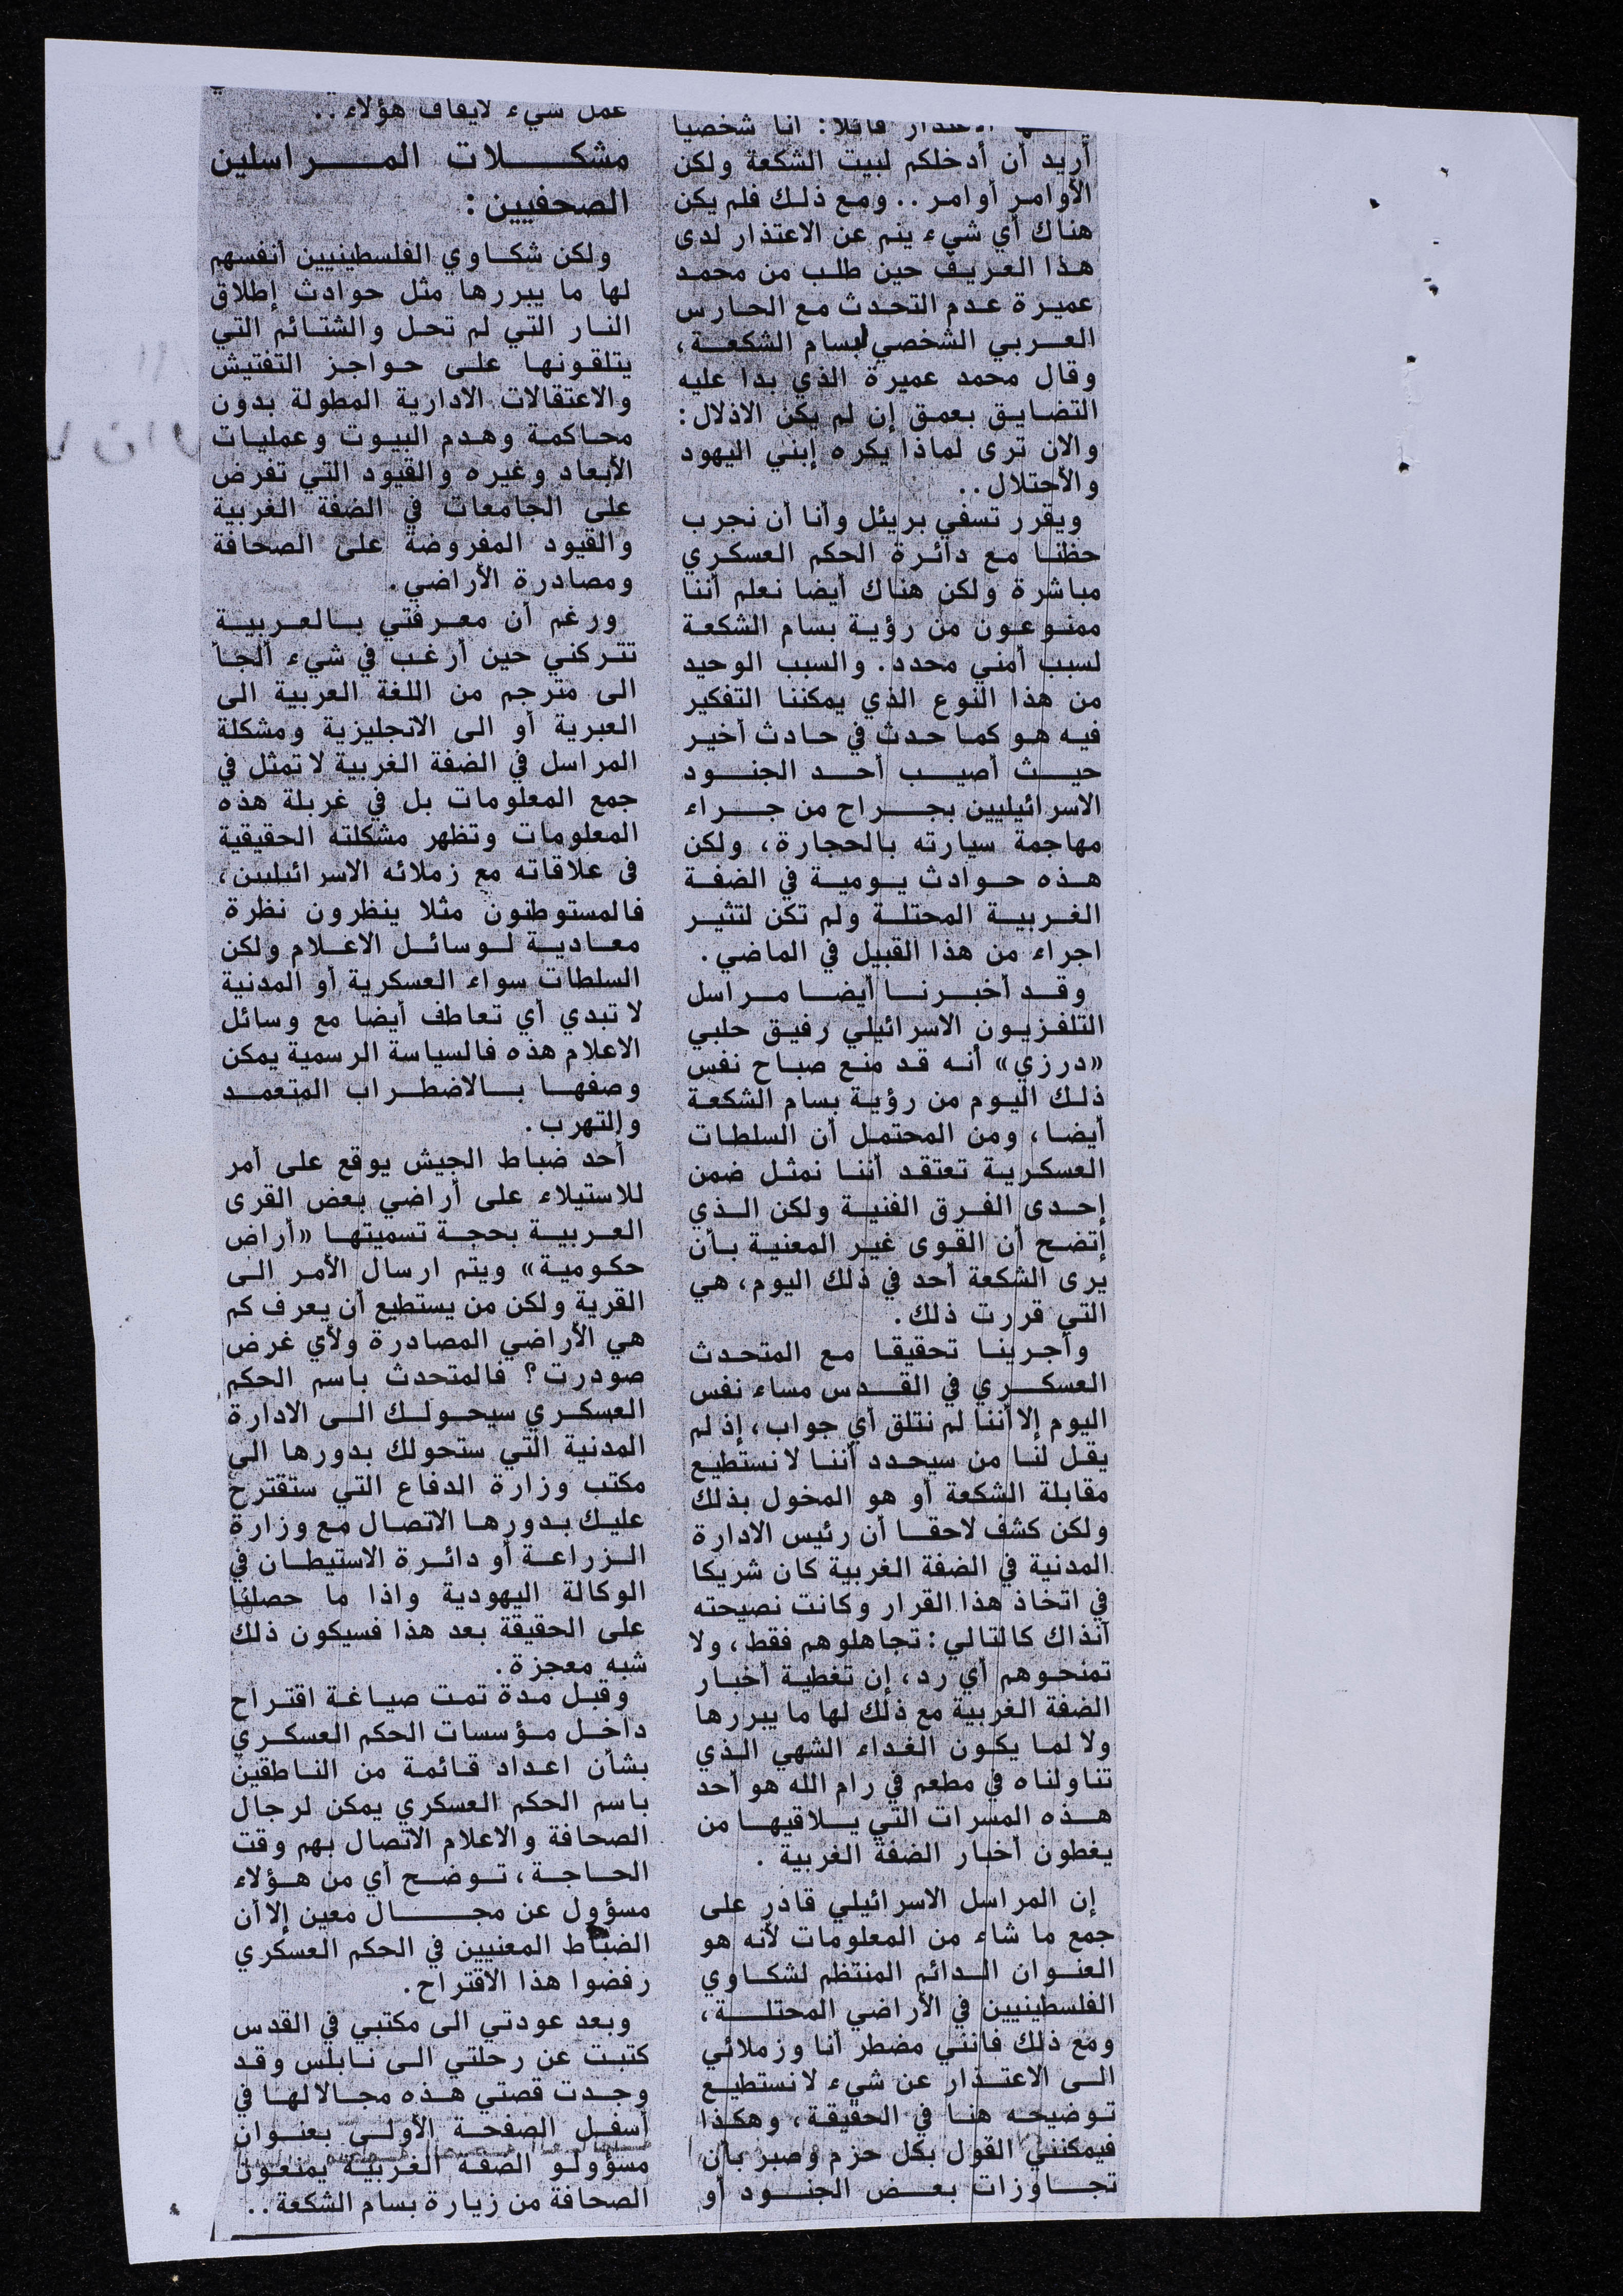 الاعتذار قائلا: أنا شخصيا
أريد أن أدخلكم لبيت الشكعة ولكن
الأوامر أوامر.. ومع ذلك فلم يكن
هناك أي شيء ينم عن الاعتذار لدى
هذا العريف حين طلب من محمد
عميرة عدم التحدث مع الحارس
العربي الشخصي لبسام الشكعة،
وقال محمد عميرة الذي بدا عليه
التضايق بعمق إن لم يكن الاذلال:
والآن ترى لماذا يكره إبني اليهود
والأحتلال..
ويقرر تسفي بريئل وأنا أن نجرب
حظنا مع دائرة الحكم العسكري
مباشرة ولكن هناك أيضا نعلم أننا
ممنوعون من رؤية بسام الشكعة
لسبب أمني محدد. والسبب الوحيد
من هذا النوع الذي يمكننا التفكير
فيه هو كما حدث في حادث أخير
حيث أصيب أحد الجنود
الاسرائيليين بجراح من جراء
مهاجمة سيارته بالحجارة، ولكن
هذه حوادث يومية في الضفة
الغربية المحتلة ولم تكن لتثير
اجراء من هذا القبيل في الماضي.
وقد أخبرنا أيضا مراسل
التلفزيون الاسرائيلي رفيق حلبي
«درزي» أنه قد منع صباح نفس
ذلك اليوم من رؤية بسام الشكعة
أيضا، ومن المحتمل أن السلطات
العسكرية تعتقد أننا نمثل ضمن
إحدى الفرق الفنية ولكن الذي
إتضح أن القوى غير المعنية بأن
يرى الشكعة أحد في ذلك اليوم، هي
التي قررت ذلك.
وأجرينا تحقيقا مع المتحدث
العسكري في القدس مساء نفس
اليوم إلا أننا لم نتلق أي جواب، إذ لم
يقل لنا من سيحدد أننا لا نستطيع
مقابلة الشكعة أو هو المخول بذلك
ولكن كشف لاحقا أن رئيس الادارة
المدنية في الضفة الغربية كان شريكا
في اتخاذ هذا القرار وكانت نصيحته
آنذاك كالتالي: تجاهلوهم فقط، ولا
تمنحوهم أي رد، إن تغطية أخبار
الضفة الغربية مع ذلك لها ما يبررها
ولا لما يكون الغداء الشهي الذي
تناولناه في مطعم في رام الله هو أحد
هذه المسرات التي يلاقيها من
يغطون أخبار الضفة الغربية.
إن المراسل الاسرائيلي قادر على
جمع ما شاء من المعلومات لأنه هو
العنوان الدائم المنتظم لشكاوي
الفلسطينيين في الأراضي المحتلة،
ومع ذلك فانني مضطر أنا وزملائي
الى الاعتذار عن شيء لا نستطيع
توضيحه هنا في الحقيقة، وهكذا
فيمكنني القول بكل حزم وصبر بأن
تجاوزات بعض الجنود أو
عمل شيء لايقاف هؤلاء..
مشكلات المراسلين
الصحفيين:
ولكن شكاوي الفلسطينيين أنفسهم
لها ما يبررها مثل حوادث إطلاق
النار التي لم تحل والشتائم التي
يتلقونها على حواجز التفتيش
والاعتقالات الادارية المطولة بدون
محاكمة وهدم البيوت وعمليات
الأبعاد وغيره والقيود التي تفرض
على الجامعات في الضفة الغربية
والقيود المفروضة على الصحافة
ومصادرة الأراضي.
ورغم أن معرفتي بالعربية
تتركني حين أرغب في شيء ألجأ
الى مترجم من اللغة العربية الى
العبرية أو الى الانجليزية ومشكلة
المراسل في الضفة الغربية لا تمثل في
جمع المعلومات بل في غربلة هذه
المعلومات وتظهر مشكلته الحقيقية
فى علاقاته مع زملائه الاسرائيليين،
فالمستوطنون مثلا ينظرون نظرة
معادية لوسائل الاعلام ولكن
السلطات سواء العسكرية أو المدنية
لا تبدي أي تعاطف أيضا مع وسائل
الاعلام هذه فالسياسة الرسمية يمكن
وصفها بالاضطراب المتعمد
والتهرب.
أحد ضباط الجيش يوقع على أمر
للاستيلاء على أراضي بعض القرى
العربية بحجة تسميتها «أراض
حكومية» ويتم ارسال الأمر الى
القرية ولكن من يستطيع أن يعرف كم
هي الأراضي المصادرة ولأي غرض
صودرت؟ فالمتحدث باسم الحكم
العسكري سيحولك الى الادارة
المدنية التي ستحولك بدورها الى
مكتب وزارة الدفاع التي ستقترح
عليك بدورها الاتصال مع وزارة
الزراعة أو دائرة الاستيطان في
الوكالة اليهودية واذا ما حصلنا
على الحقيقة بعد هذا فسيكون ذلك
شبه معجزة.
وقبل مدة تمت صياغة اقتراح
داخل مؤسسات الحكم العسكري
بشأن اعداد قائمة من الناطقين
باسم الحكم العسكري يمكن لرجال
الصحافة والاعلام الاتصال بهم وقت
الحاجة، توضح أي من هؤلاء
مسؤول عن مجال معين إلا أن
الضباط المعنيين في الحكم العسكري
رفضوا هذا الاقتراح.
وبعد عودتي الى مكتبي في القدس
كتبت عن رحلتي الى نابلس وقد
وجدت قصتي هذه مجالا لها في
أسفل الصفحة الأولى بعنوان
مسؤولو الضفة الغربية يمنعون
الصحافة من زيارة بسام الشكعة..